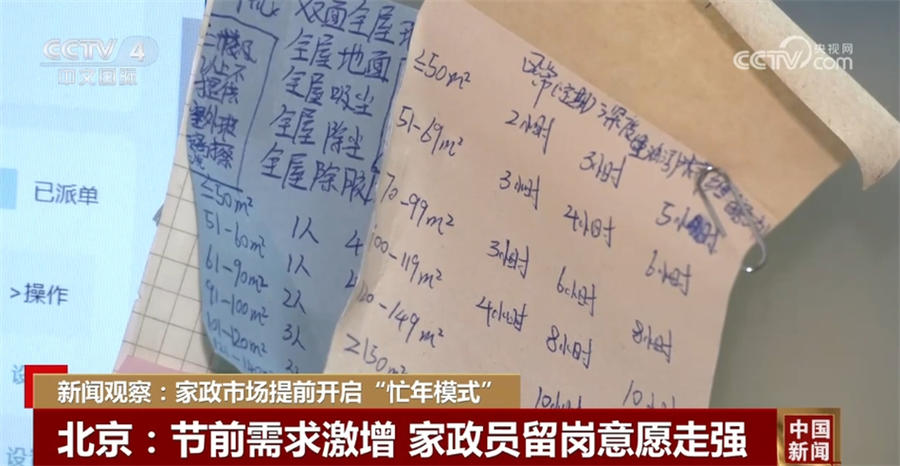 CCTV 4
中文国际
央视网
CCTV.com
已派单
>操作
设
设
提供
双面全屋
全屋地面
全屋吸尘
全屋除尘
全屋除胶
≤50m²
51-60m² 1人 4
61-90m² 1人
91-100m² 2人
101-120m² 3人
日常(定期) 深度
≤50m² 2小时 3小时 5小时
51-69m² 3小时 4小时 6小时
70-99m² 3小时 6小时 8小时
100-119m² 4小时 8小时
120-149m² 10小时
≥150m²
新闻观察：家政市场提前开启“忙年模式”
北京：节前需求激增 家政员留岗意愿走强
中国新闻